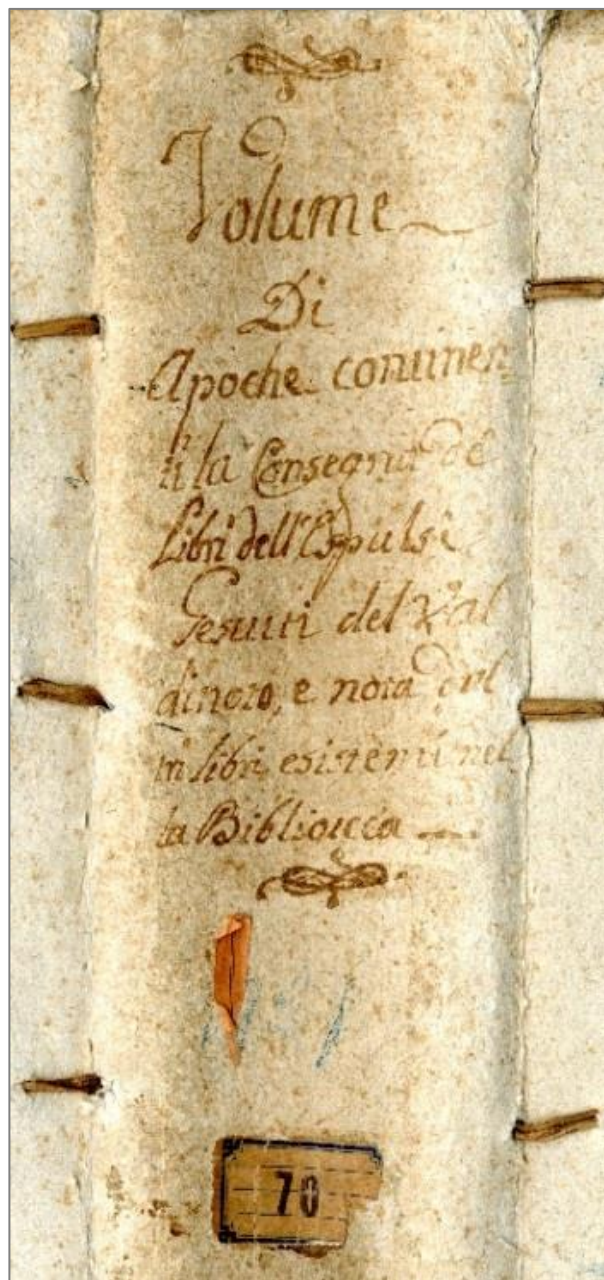 Volume
Di
Apoche continen
ti la Consegna de
Libri dell'Espulsi
Gesuiti del Val
dinoto, e nota d'al
tri libri esistenti nel
la Biblioteca
70